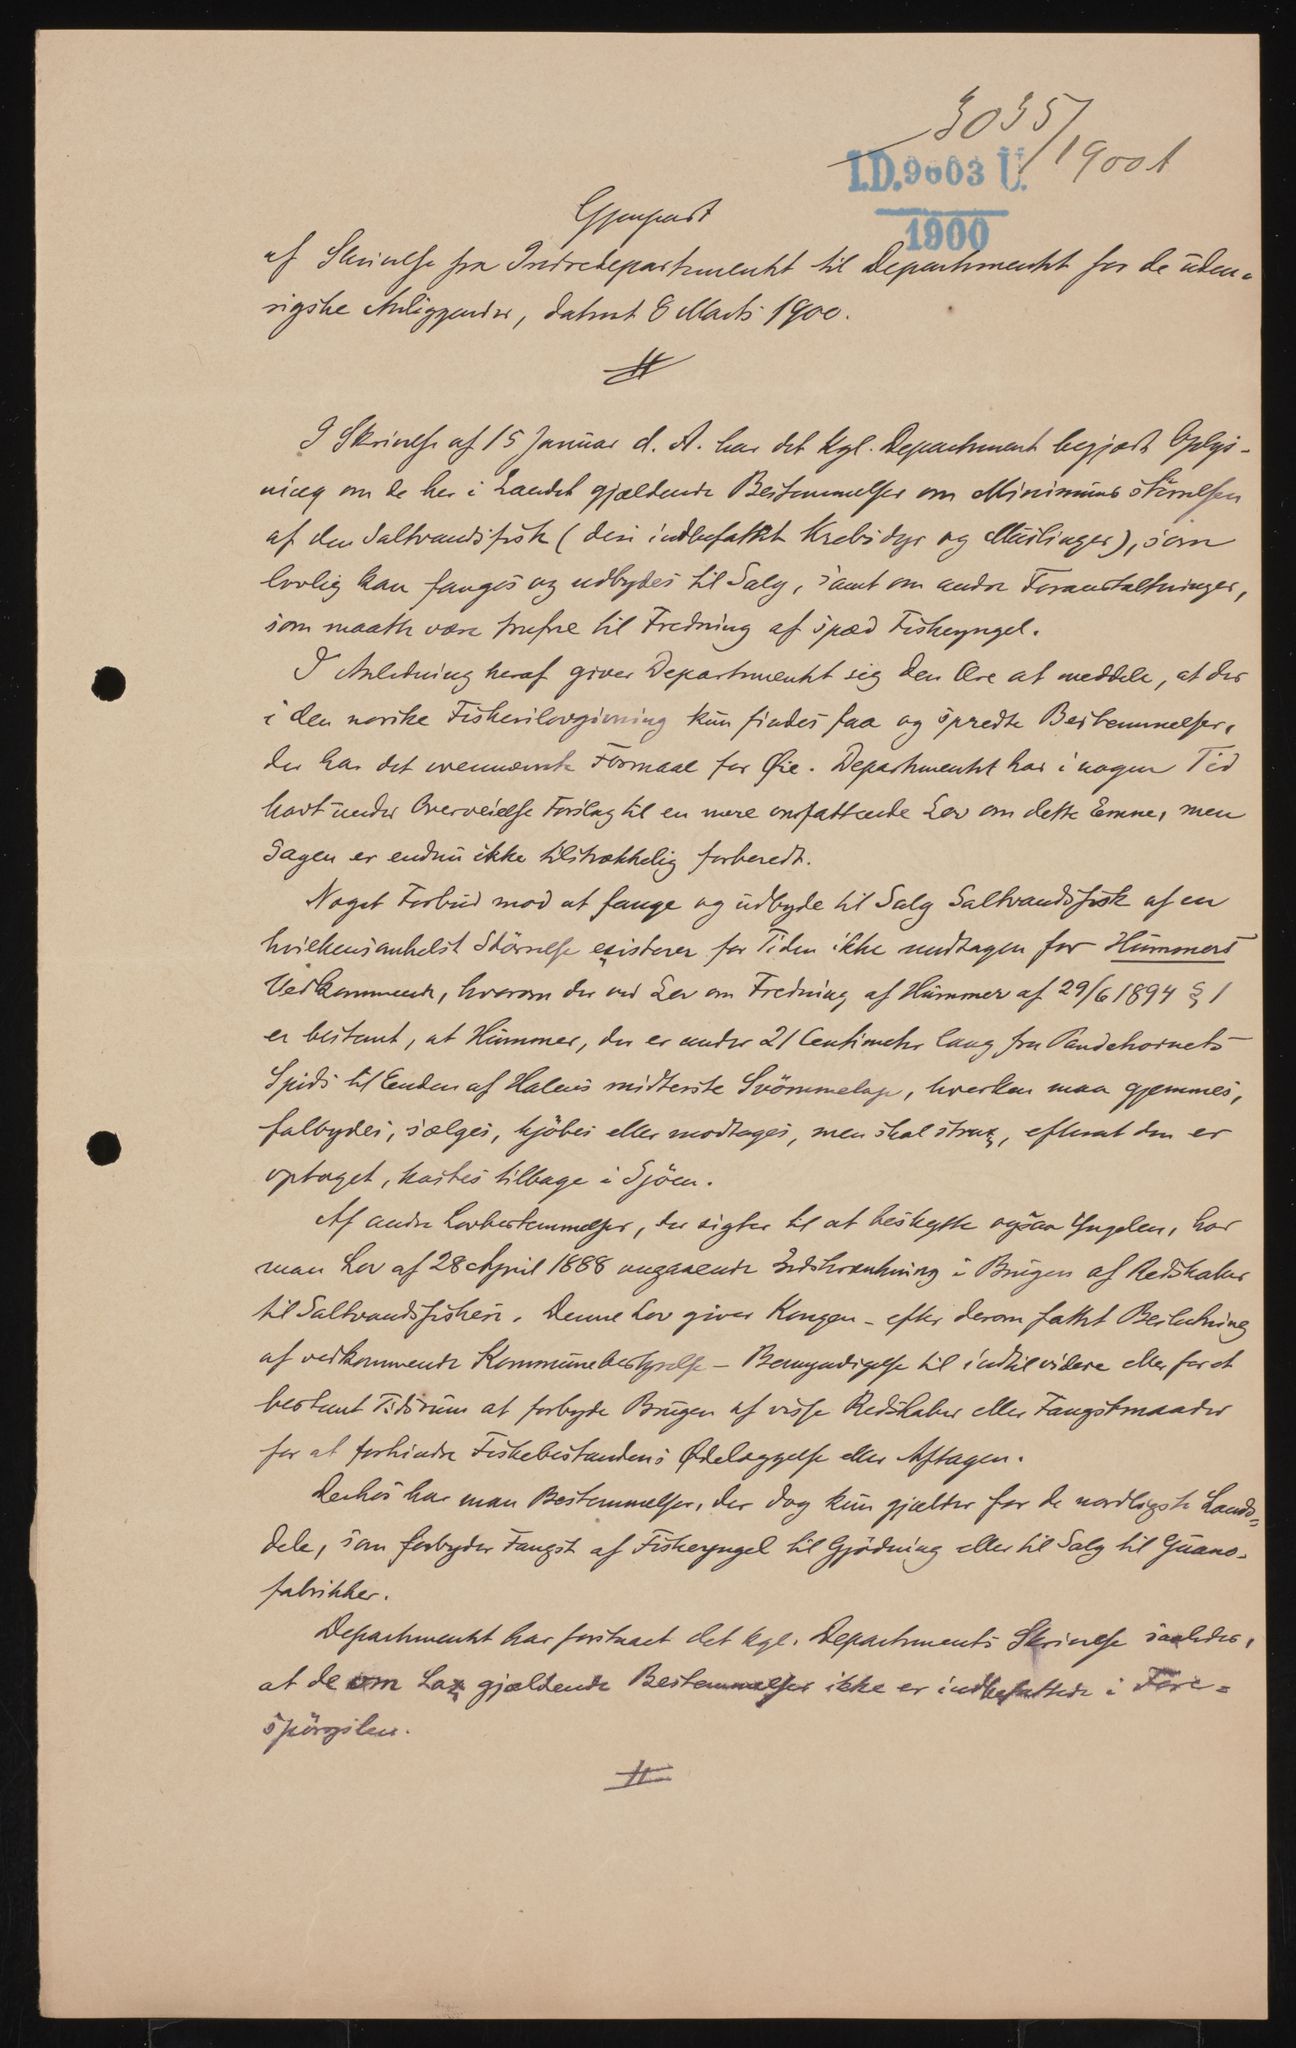 3035/1900 A
I.D. 9603 U.
1900
Gjenpart
af Skrivelse fra Indredepartementet til Departementet for de uden-
rigske Anliggender, datert 8 Marts 1900.
I Skrivelse af 15 Januar d. A. har det kgl. Departement begjært Oplys-
ning om de her i Landet gjældende Bestemmelser om Minimumsstörrelsen
af den Saltvandsfisk (deri indbefattet Krebsdyr og Muslinger), som
lovlig kan fanges og udbydes til Salg, samt om andre Foranstaltninger,
som maatte være trufne til Fredning af spæd Fiskeyngel.
I Anledning heraf giver Departementet sig den Ære at meddele, at der
i den norske Fiskerilovgivning kun findes faa og spredte Bestemmelser,
der har det ovennævnte Formaal for Öie. Departementet har i nogen Tid
havt under Overveielse Forslag til en mere omfattende Lov om dette Emne, men
Sagen er endnu ikke tilstrækkelig forberedt.
Noget Forbud mod at fange og udbyde til Salg Saltvandsfisk af en
hvilkensomhelst Störrelse existerer for Tiden ikke undtagen for Hummers
Vedkommende, hvorom der ved Lov om Fredning af Hummer af 29/6 1894 § 1
er bestemt, at Hummer, der er under 21 Centimeter lang fra Pandehornets
Spids til Enden af Halens midterste Svömmelap, hverken maa gjemmes,
falbydes, sælges, kjöbes eller modtages, men skal strax, efterat den er
optaget, kastes tilbage i Sjöen.
Af andre Lovbestemmelser, der sigter til at beskytte ogsaa Yngelen, har
man Lov af 28 April 1888 angaaende Indskrænkning i Brugen af Redskaber
til Saltvandsfiskeri. Denne Lov giver Kongen - efter derom fattet Beslutning
af vedkommende Kommunebestyrelse - Bemyndigelse til indtil videre eller for et
bestemt Tidsrum at forbyde Brugen af visse Redskaber eller Fangstmaader
for at forhindre Fiskebestandens Ödelæggelse eller Aftagen.
Derhos har man Bestemmelser, der dog kun gjælder for de nordligste Lands-
dele, som forbyder Fangst af Fiskeyngel til Gjödning eller til Salg til Guano-
fabrikker.
Departementet har forstaaet det kgl. Departements Skrivelse saaledes,
at de om Lax gjældende Bestemmelser ikke er indbefattede i Fore-
spörgslen.